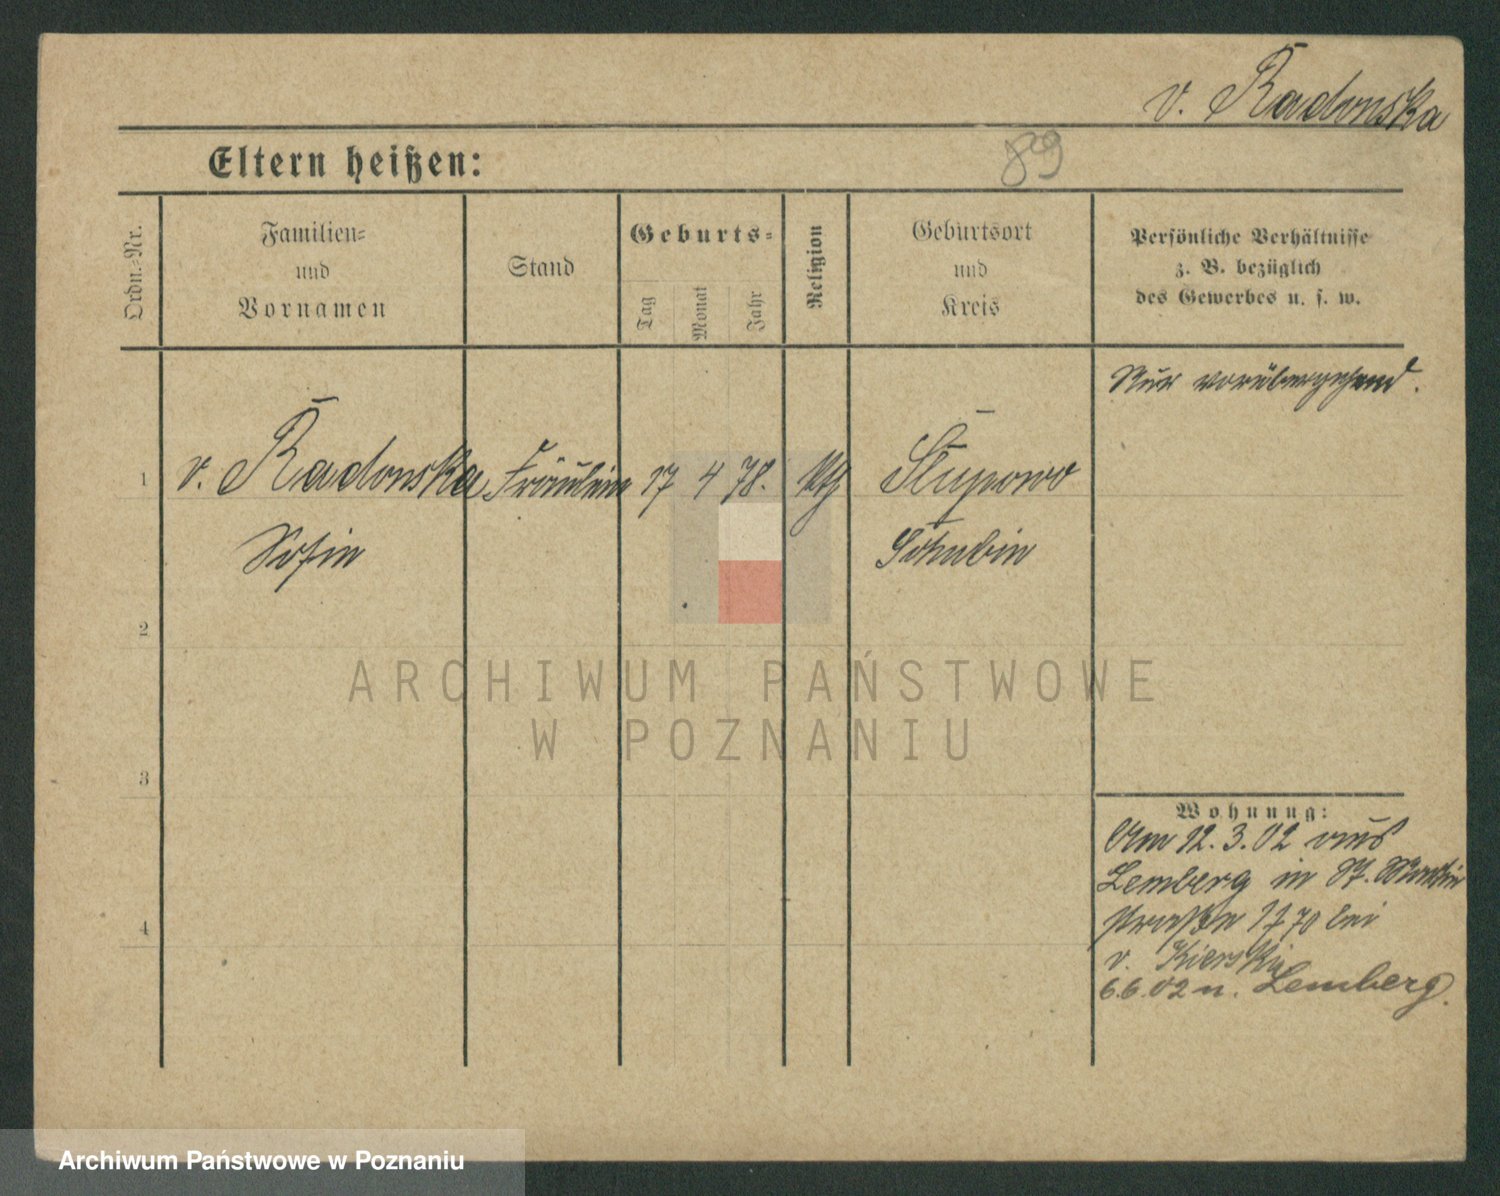 v. Radonska
Eltern heißen:
89
Ordn.-Nr.
Familien-
und
Vornamen
Stand
Geburts-
Tag
Monat
Jahr
Religion
Geburtsort
und
Kreis
Persönliche Verhältnisse
z. B. bezüglich
des Gewerbes u. s. w.
Nur vorübergehend.
1 v. Radonska Fräulein 17 4 78. kth Slupowo
Sofie Schubin
2
3
4
Wohnung:
Am 12.3.02 aus
Lemberg in St. Martin
straße 70 bei
v. Kierski
6.6.02 n. Lemberg.
ARCHIWUM PAŃSTWOWE
W POZNANIU
Archiwum Państwowe w Poznaniu